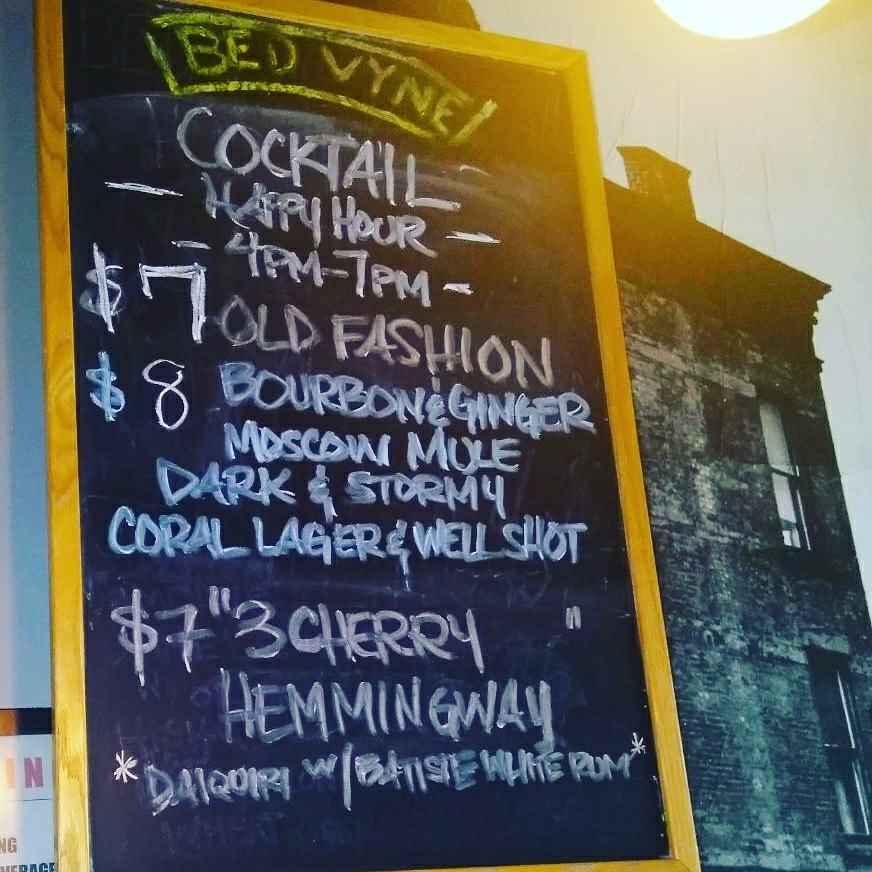 BED VYNE
COCKTAIL
- HAPPY HOUR -
- 4PM-7PM -
$7 OLD FASHION
$8 BOURBON & GINGER
MOSCOW MULE
DARK & STORMY
CORAL LAGER & WELL SHOT
$7 "3 CHERRY "
HEMMINGWAY
* DAIQUIRI W/ BATISTE WHITE RUM *
IN
NG
VERAGE